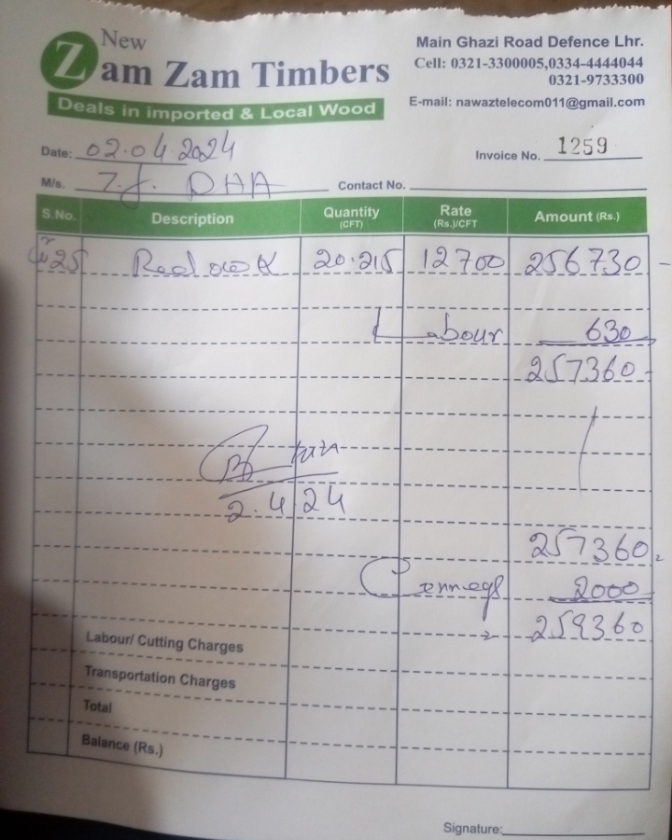 New
Zam Zam Timbers
Deals in imported & Local Wood
Main Ghazi Road Defence Lhr.
Cell: 0321-3300005,0334-4444044
0321-9733300
E-mail: nawaztelecom011@gmail.com
Date: 02.04.2024
Invoice No. 1259
M/s. Z.J. DHA
Contact No.
S.No. Description Quantity (CFT) Rate (Rs.)/CFT Amount (Rs.)
25 Red oak 20.215 12700 256730
Labour 630
257360
2.4.24
257360
2000
259360
Labour/ Cutting Charges
Transportation Charges
Total
Balance (Rs.)
Signature: